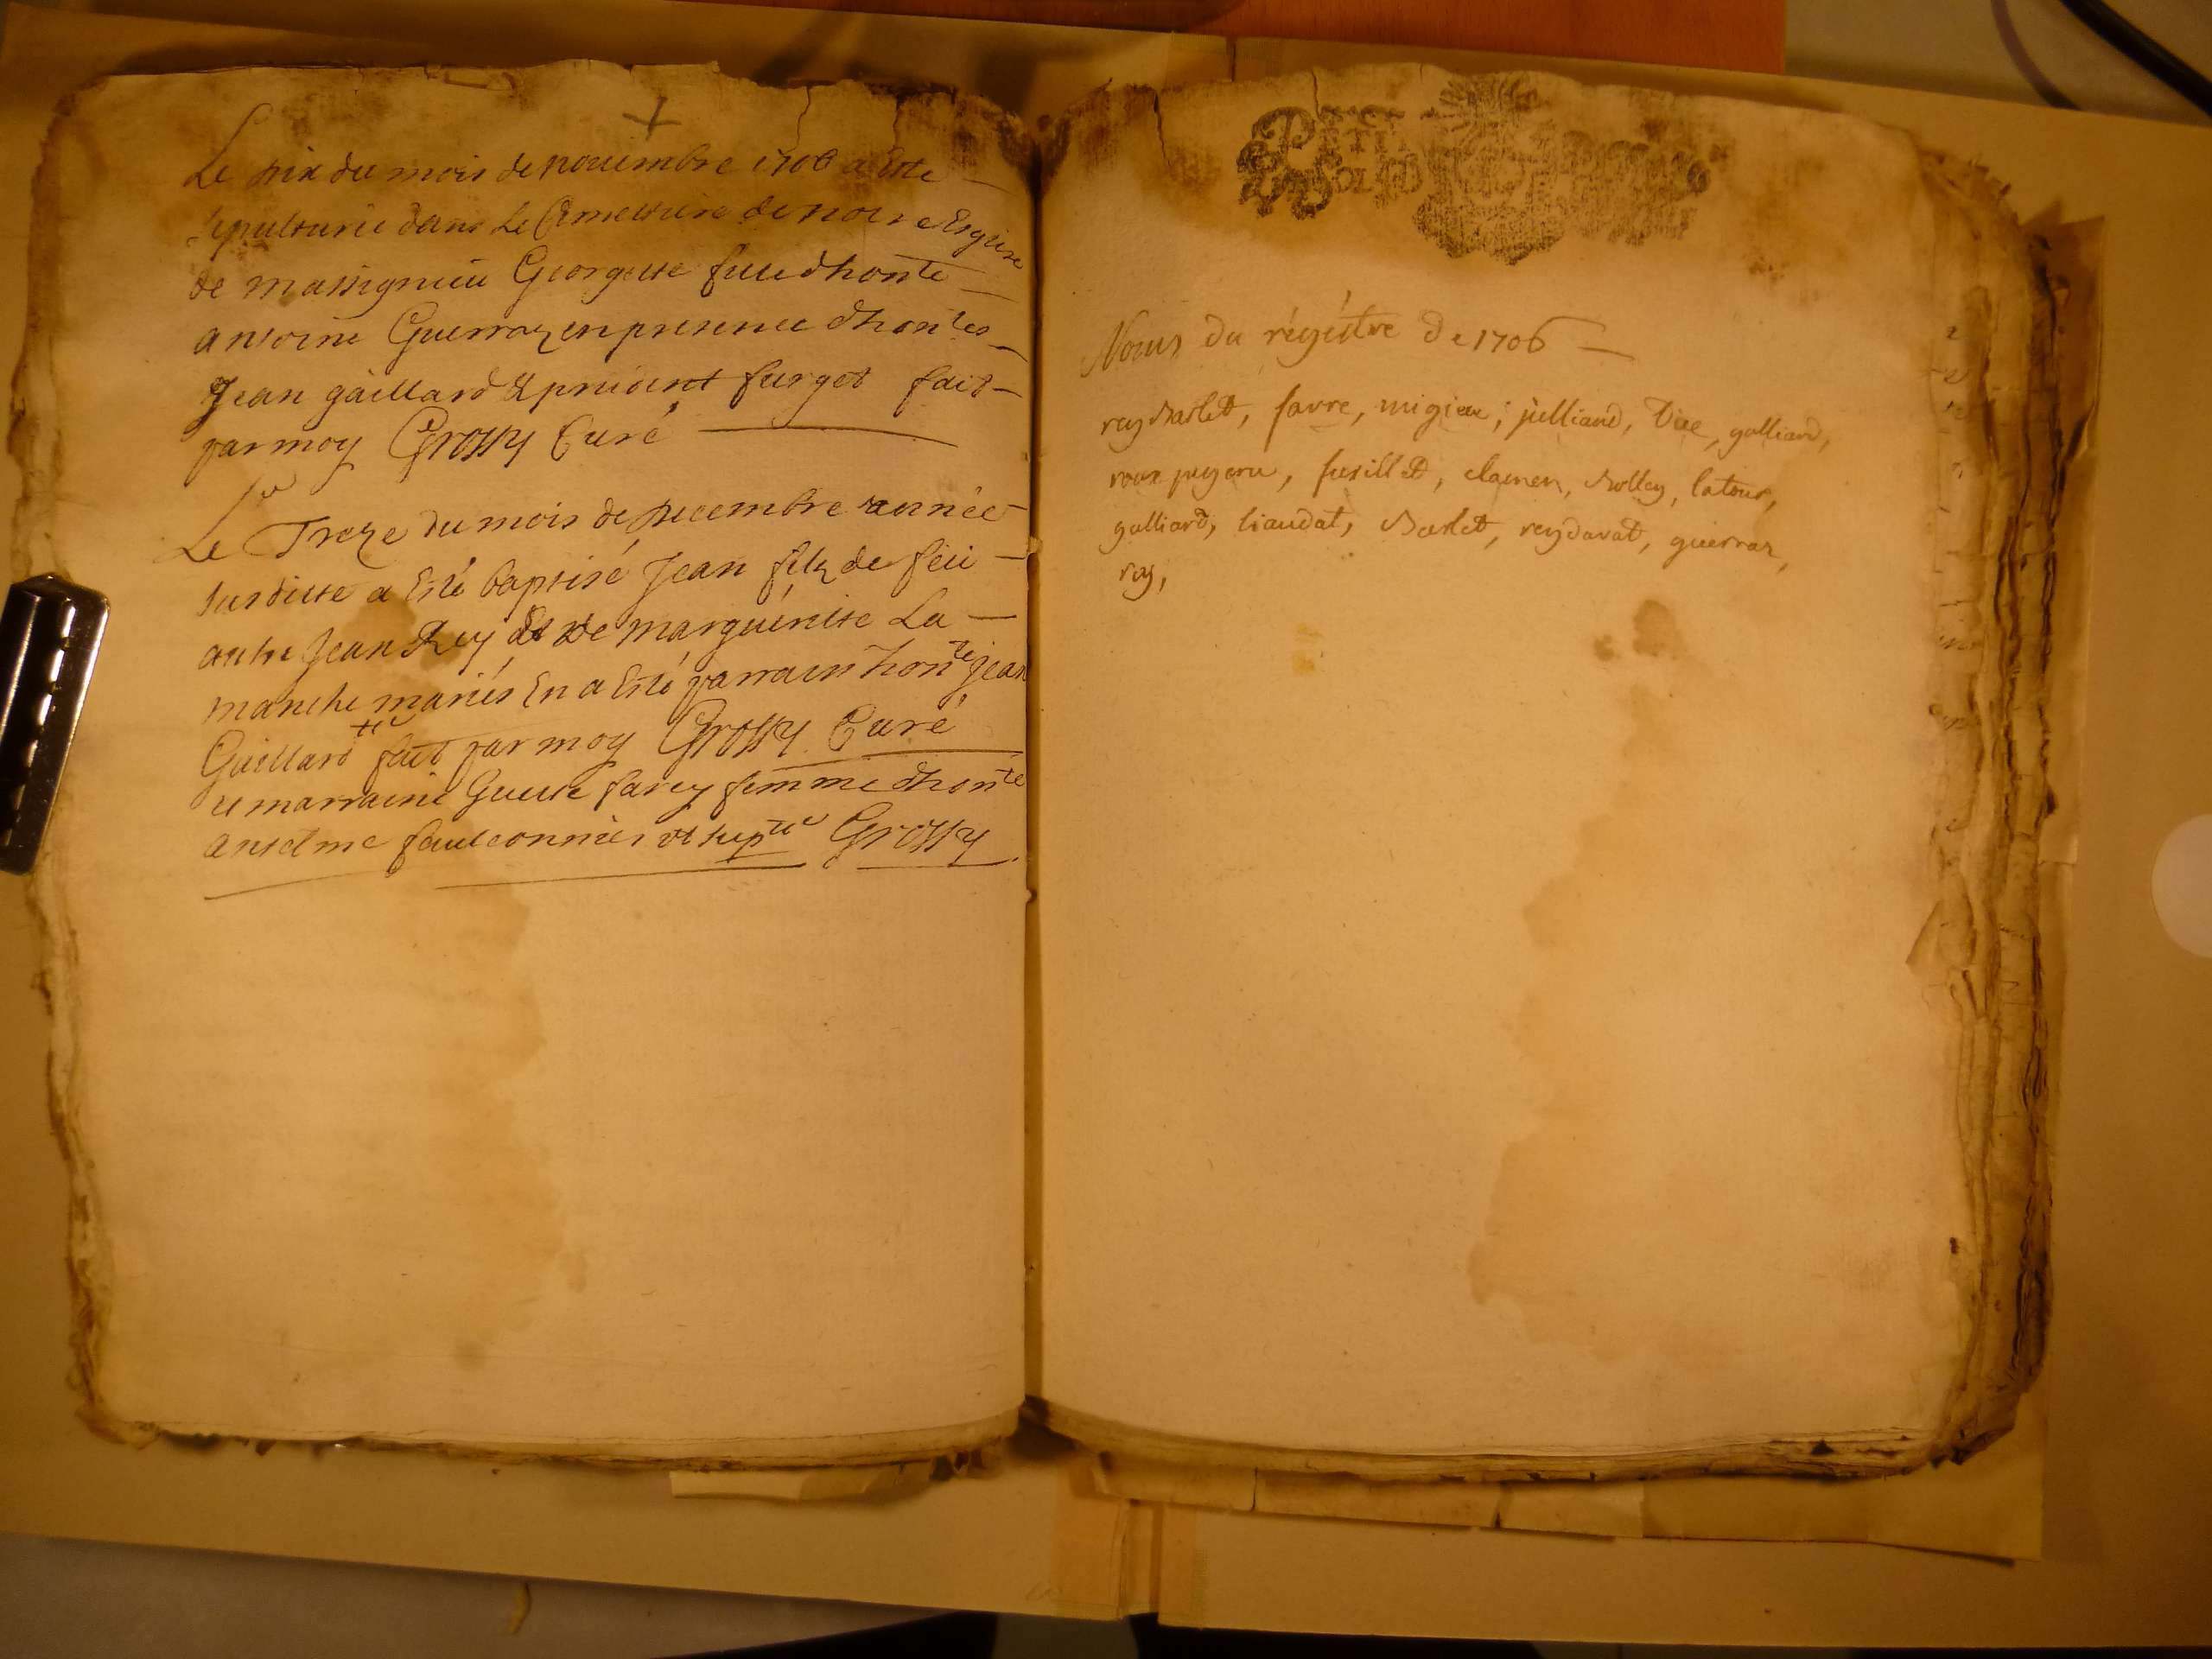 Le dix du mois de novembre 1706 a este
sepulturée dans Le Cimettiere de nostre Esglise
de massignieu Georgette fille dhonte
antoine Guerraz en presence dhontes
Jean gaillard & prudent furget fait
par moy Grossy Curé
Le Treze du mois de decembre année
susditte a Esté baptisé Jean filz de feu
autre Jean Rey & de margueritte La
manche mariés En a Esté parrain honte Jean
Gaillard fait par moy Grossy Curé
et marraine Guette farcy femme dhonte
anselme fauleonnier Grossy
Noms du régistre de 1706
rey barlet, favre, migieu, julliand, Vice, galliard,
roux pugeru, fusillet, clamen, bolley, latour,
galliard, liaudat, barlet, reydavat, guerraz,
roy,